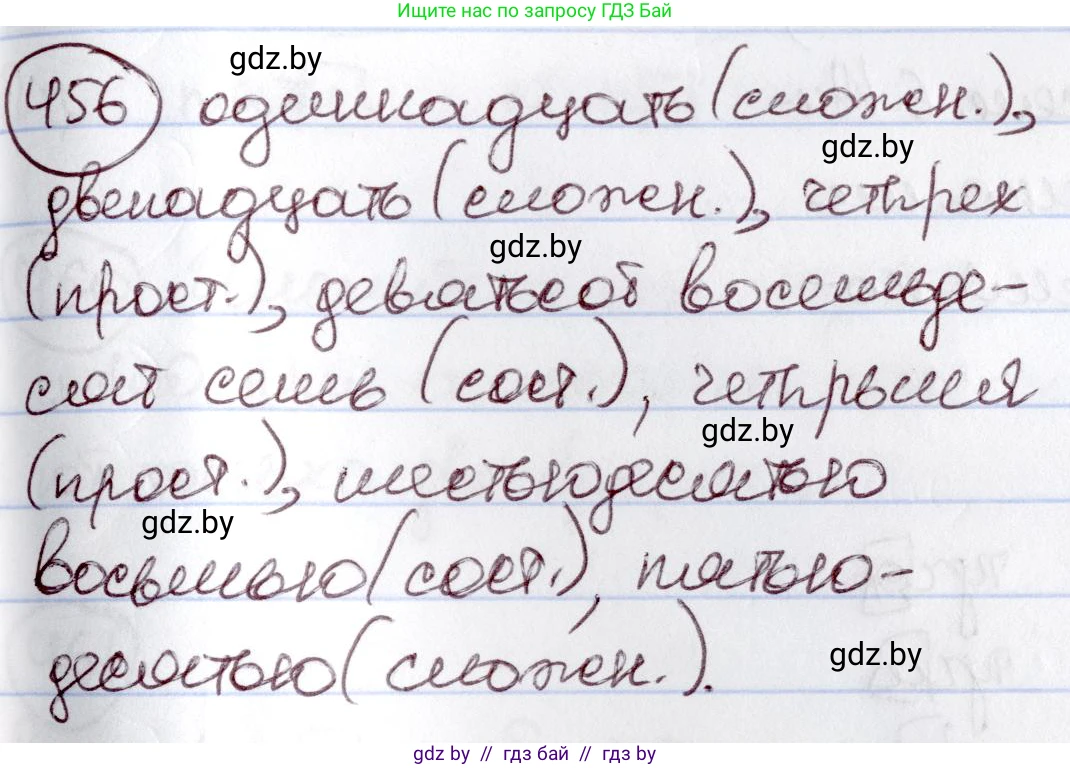 Ищите нас по запросу ГДЗ Бай
gdz.by
456 одиннадцать (сложен.),
gdz.by
двенадцать (сложен.), четырех
gdz.by
(прост.), девятьсот восемьде-
сят семь (сост.), четырьмя
gdz.by
(прост.), шестьюдесятью
gdz.by
восьмью (сост.), пятью-
десятью (сложен.).
gdz.by
gdz by // гдз бай // гдз by